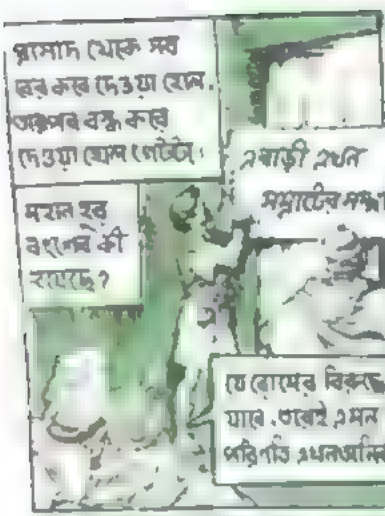 প্রাসাদ থেকে সব
বের করে দেওয়া হোল.
তারপর বন্ধ করে
দেওয়া হোল গেটটা.
এবাড়ী এখন
সম্রাটের
মহান হর
বংশের কী
হয়েছে?
যে রোমের বিরুদ্ধে
যাবে. তারই এমন
পরিণতি এখন